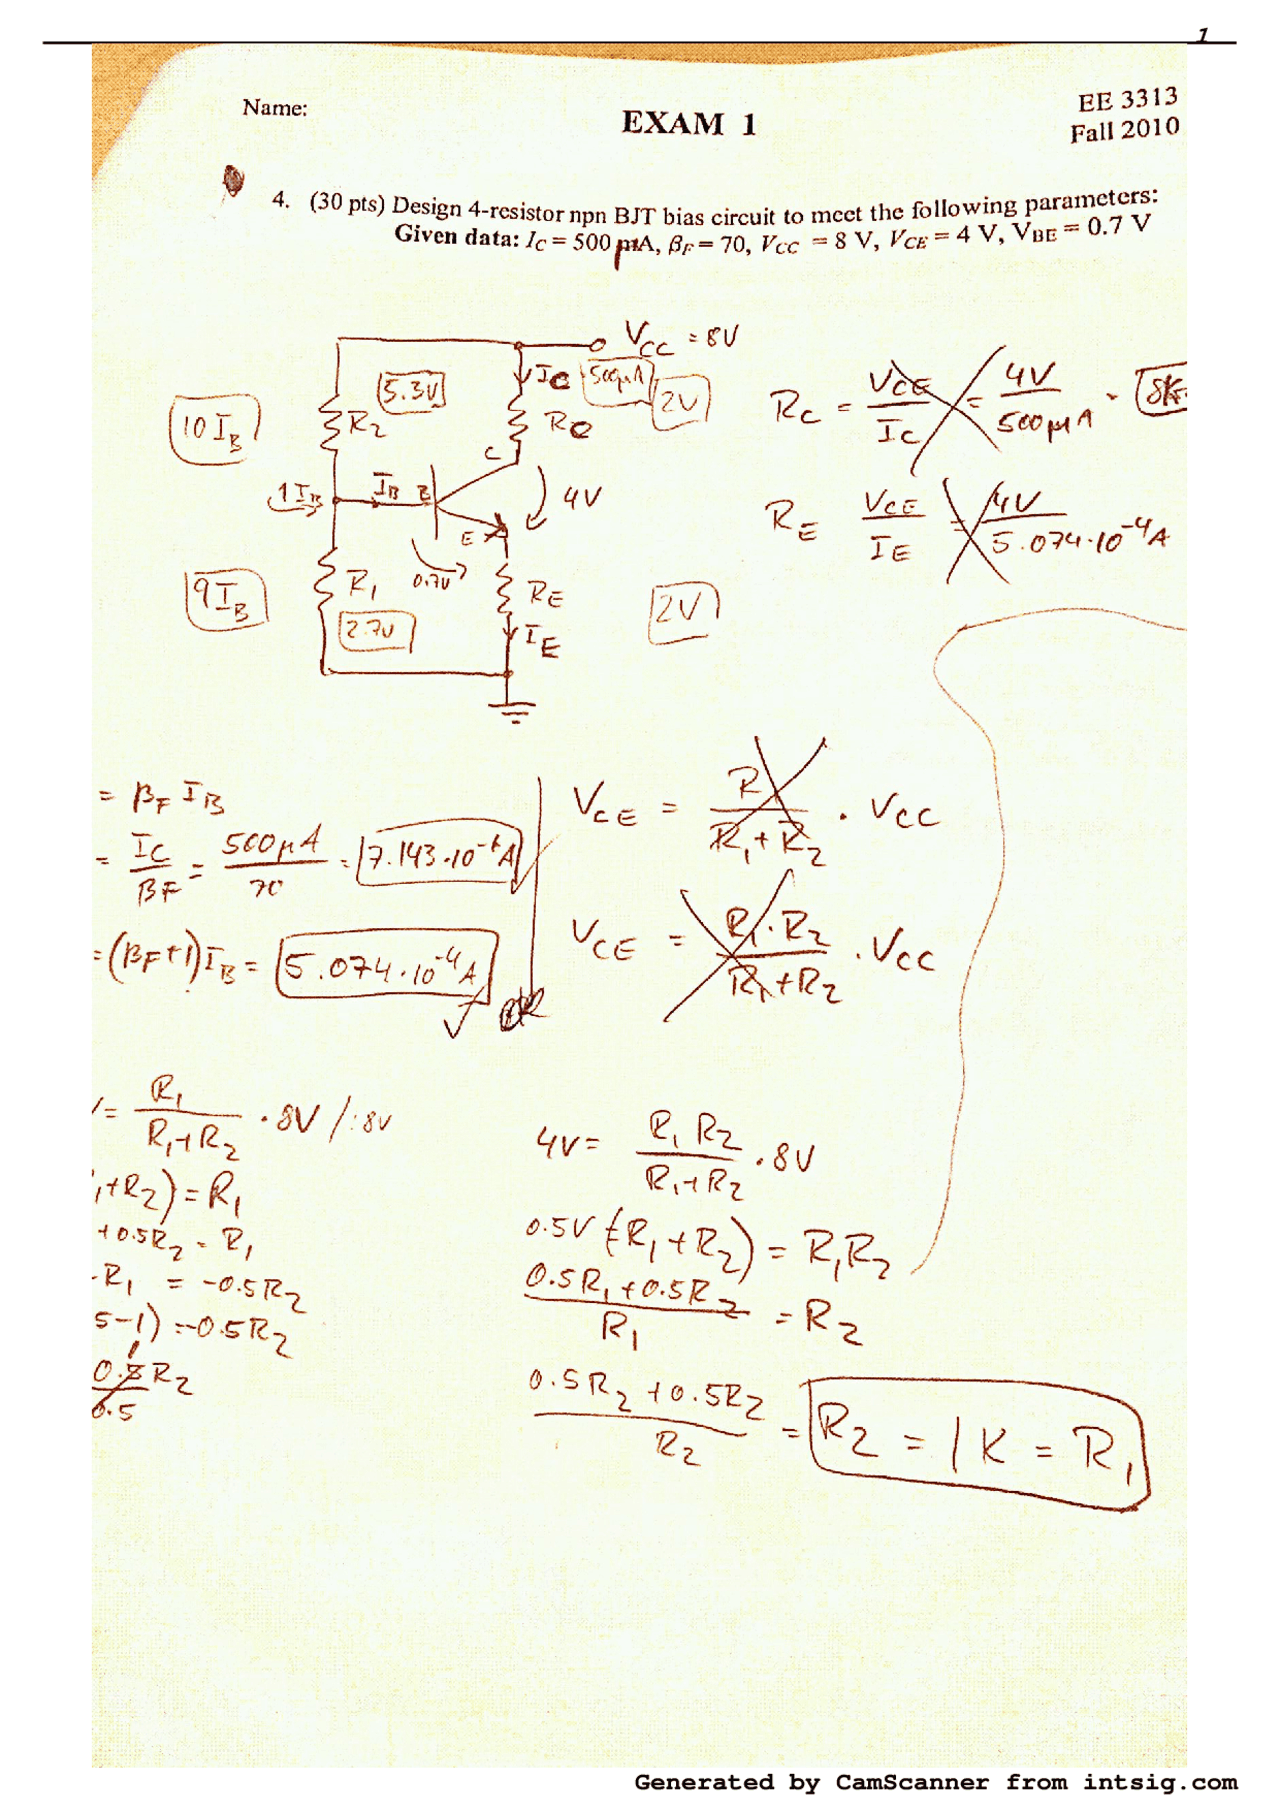 1
Name:
EXAM 1
EE 3313
Fall 2010
4. (30 pts) Design 4-resistor npn BJT bias circuit to meet the following parameters:
Given data: I_C = 500 μA, β_F = 70, V_CC = 8 V, V_CE = 4 V, V_BE = 0.7 V
V_CC = 8V
5.3V
I_C
500μA
2V
10 I_B
R_2
R_C
C
1 I_B
I_B
B
4V
E
0.7V
9 I_B
R_1
R_E
2V
2.7V
I_E
R_C = V_CE / I_C = 4V / 500μA = 8K
R_E V_CE / I_E = 4V / 5.074·10^-4 A
= β_F I_B
= I_C / β_F = 500μA / 70 = 7.143·10^-6 A
= (β_F+1) I_B = 5.074·10^-4 A
V_CE = R_1 / (R_1 + R_2) · V_CC
V_CE = R_1 · R_2 / (R_1 + R_2) · V_CC
= R_1 / (R_1 + R_2) · 8V /:8V
1 + R_2) = R_1
+ 0.5R_2 = R_1
- R_1 = -0.5R_2
5-1) = -0.5R_2
R_2
0.5
4V = R_1 R_2 / (R_1 + R_2) · 8V
0.5V (R_1 + R_2) = R_1 R_2
0.5R_1 + 0.5R_2 / R_1 = R_2
0.5R_2 + 0.5R_2 / R_2 = R_2 = 1K = R_1
Generated by CamScanner from intsig.com